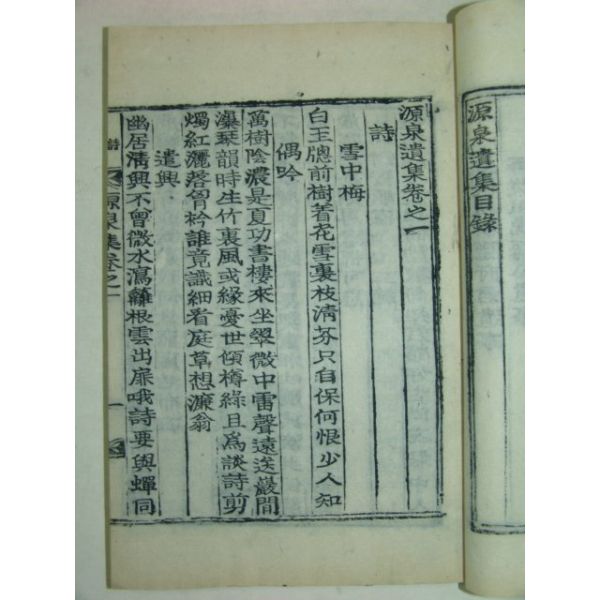 源泉遺集目錄
源泉遺集卷之一
詩
雪中梅
白玉牕前樹着花雪裏枝淸芬只自保何恨少人知
偶吟
萬樹陰濃是夏功書樓來坐翠微中雷聲遠送巖間
瀑琹韻時生竹裏風或緣憂世傾樽綠且爲談詩剪
燭紅灑落胷衿誰竟識細看庭草想濂翁
遣興
幽居淸興不曾微水瀉籬根雲出扉哦詩要與蟬同
詩
源泉集卷之一
一